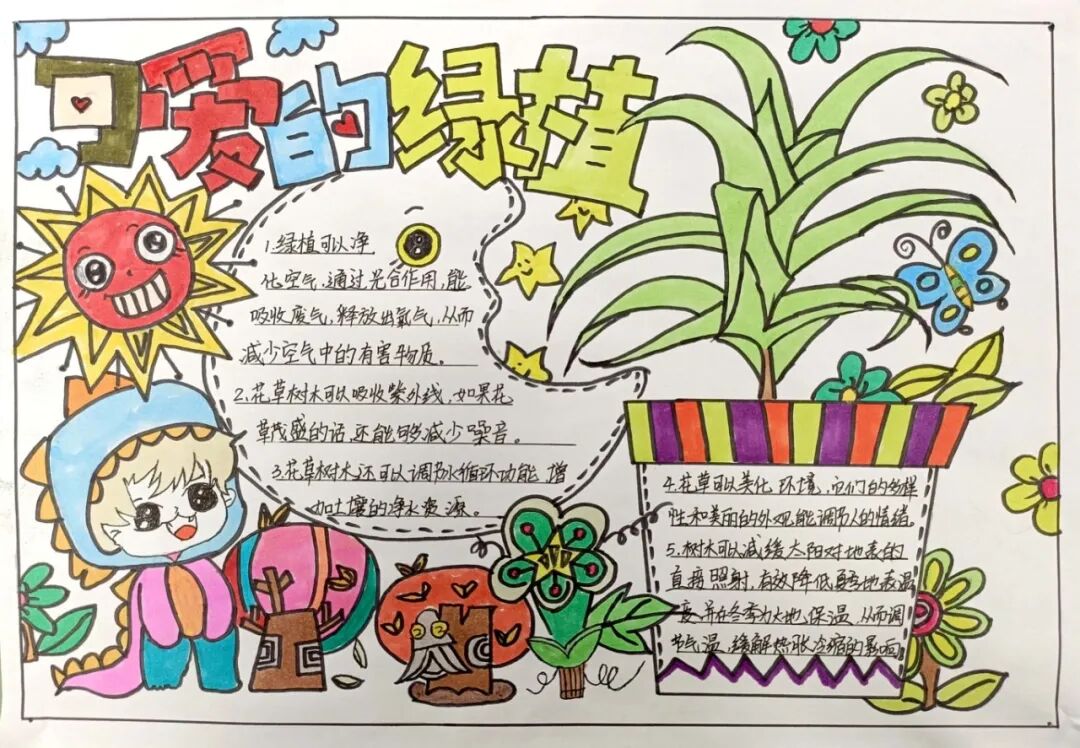 可爱的绿植
1.绿植可以净
化空气,通过光合作用,能
吸收废气,释放出氧气,从而
减少空气中的有害物质。
2.花草树木可以吸收紫外线,如果花
草茂盛的话,还能够减少噪音。
3.花草树木还可以调节水循环功能,增
加土壤的净水资源。
4.花草可以美化环境,它们的多样
性和美丽的外观,能调节人的情绪。
5.树木可以减缓太阳对地表的
直接照射,有效降低夏季地表温
度,并在冬季为大地保温,从而调
节气温,缓解热胀冷缩的影响